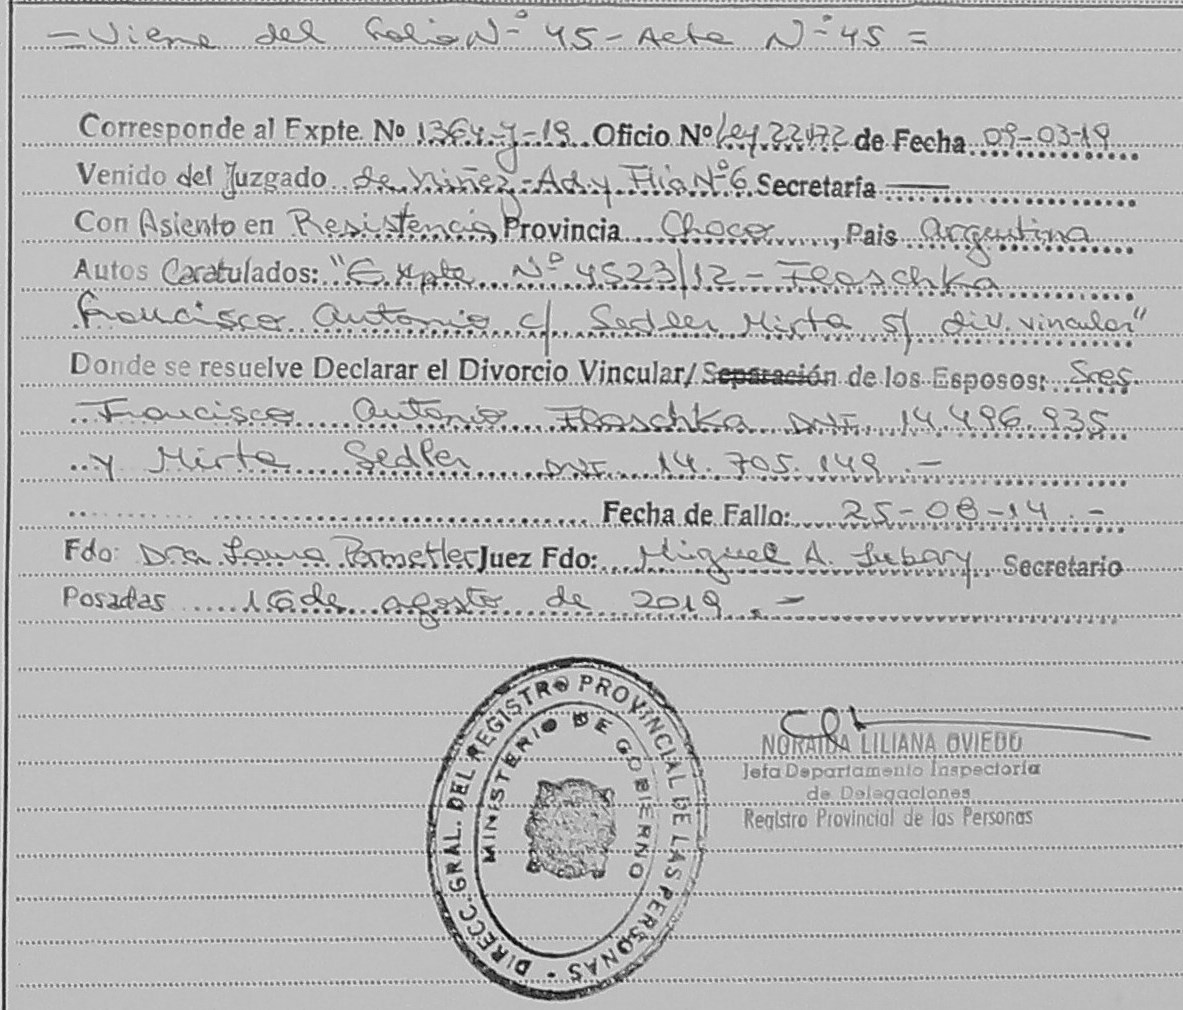 = Viene del Folio Nº 45 - Acta Nº 45 =
Corresponde al Expte. Nº 1364-J-19 Oficio Nº Ley 22172 de Fecha 09-03-19
Venido del Juzgado de Niñez-Ad. y Flia Nº 6 Secretaría ——
Con Asiento en Resistencia, Provincia Chaco, Pais Argentina
Autos Caratulados: "Expte Nº 4523/12 - Flaschka
Francisco Antonio c/ Sedler Mirta s/ div. vincular"
Donde se resuelve Declarar el Divorcio Vincular/Separación de los Esposos: Sres.
Francisco Antonio Flaschka DNI. 14.496.935
y Mirta Sedler DNI 14.705.149.-
Fecha de Fallo: 25-08-14.-
Fdo: Dra. Laura Juez Fdo: Miguel A. Secretario
Posadas 16 de agosto de 2019.-
DIRECC. GRAL. DEL REGISTRO PROVINCIAL DE LAS PERSONAS -
MINISTERIO DE GOBIERNO
NORAIDA LILIANA OVIEDO
Jefa Departamento Inspectoría
de Delegaciones
Registro Provincial de las Personas